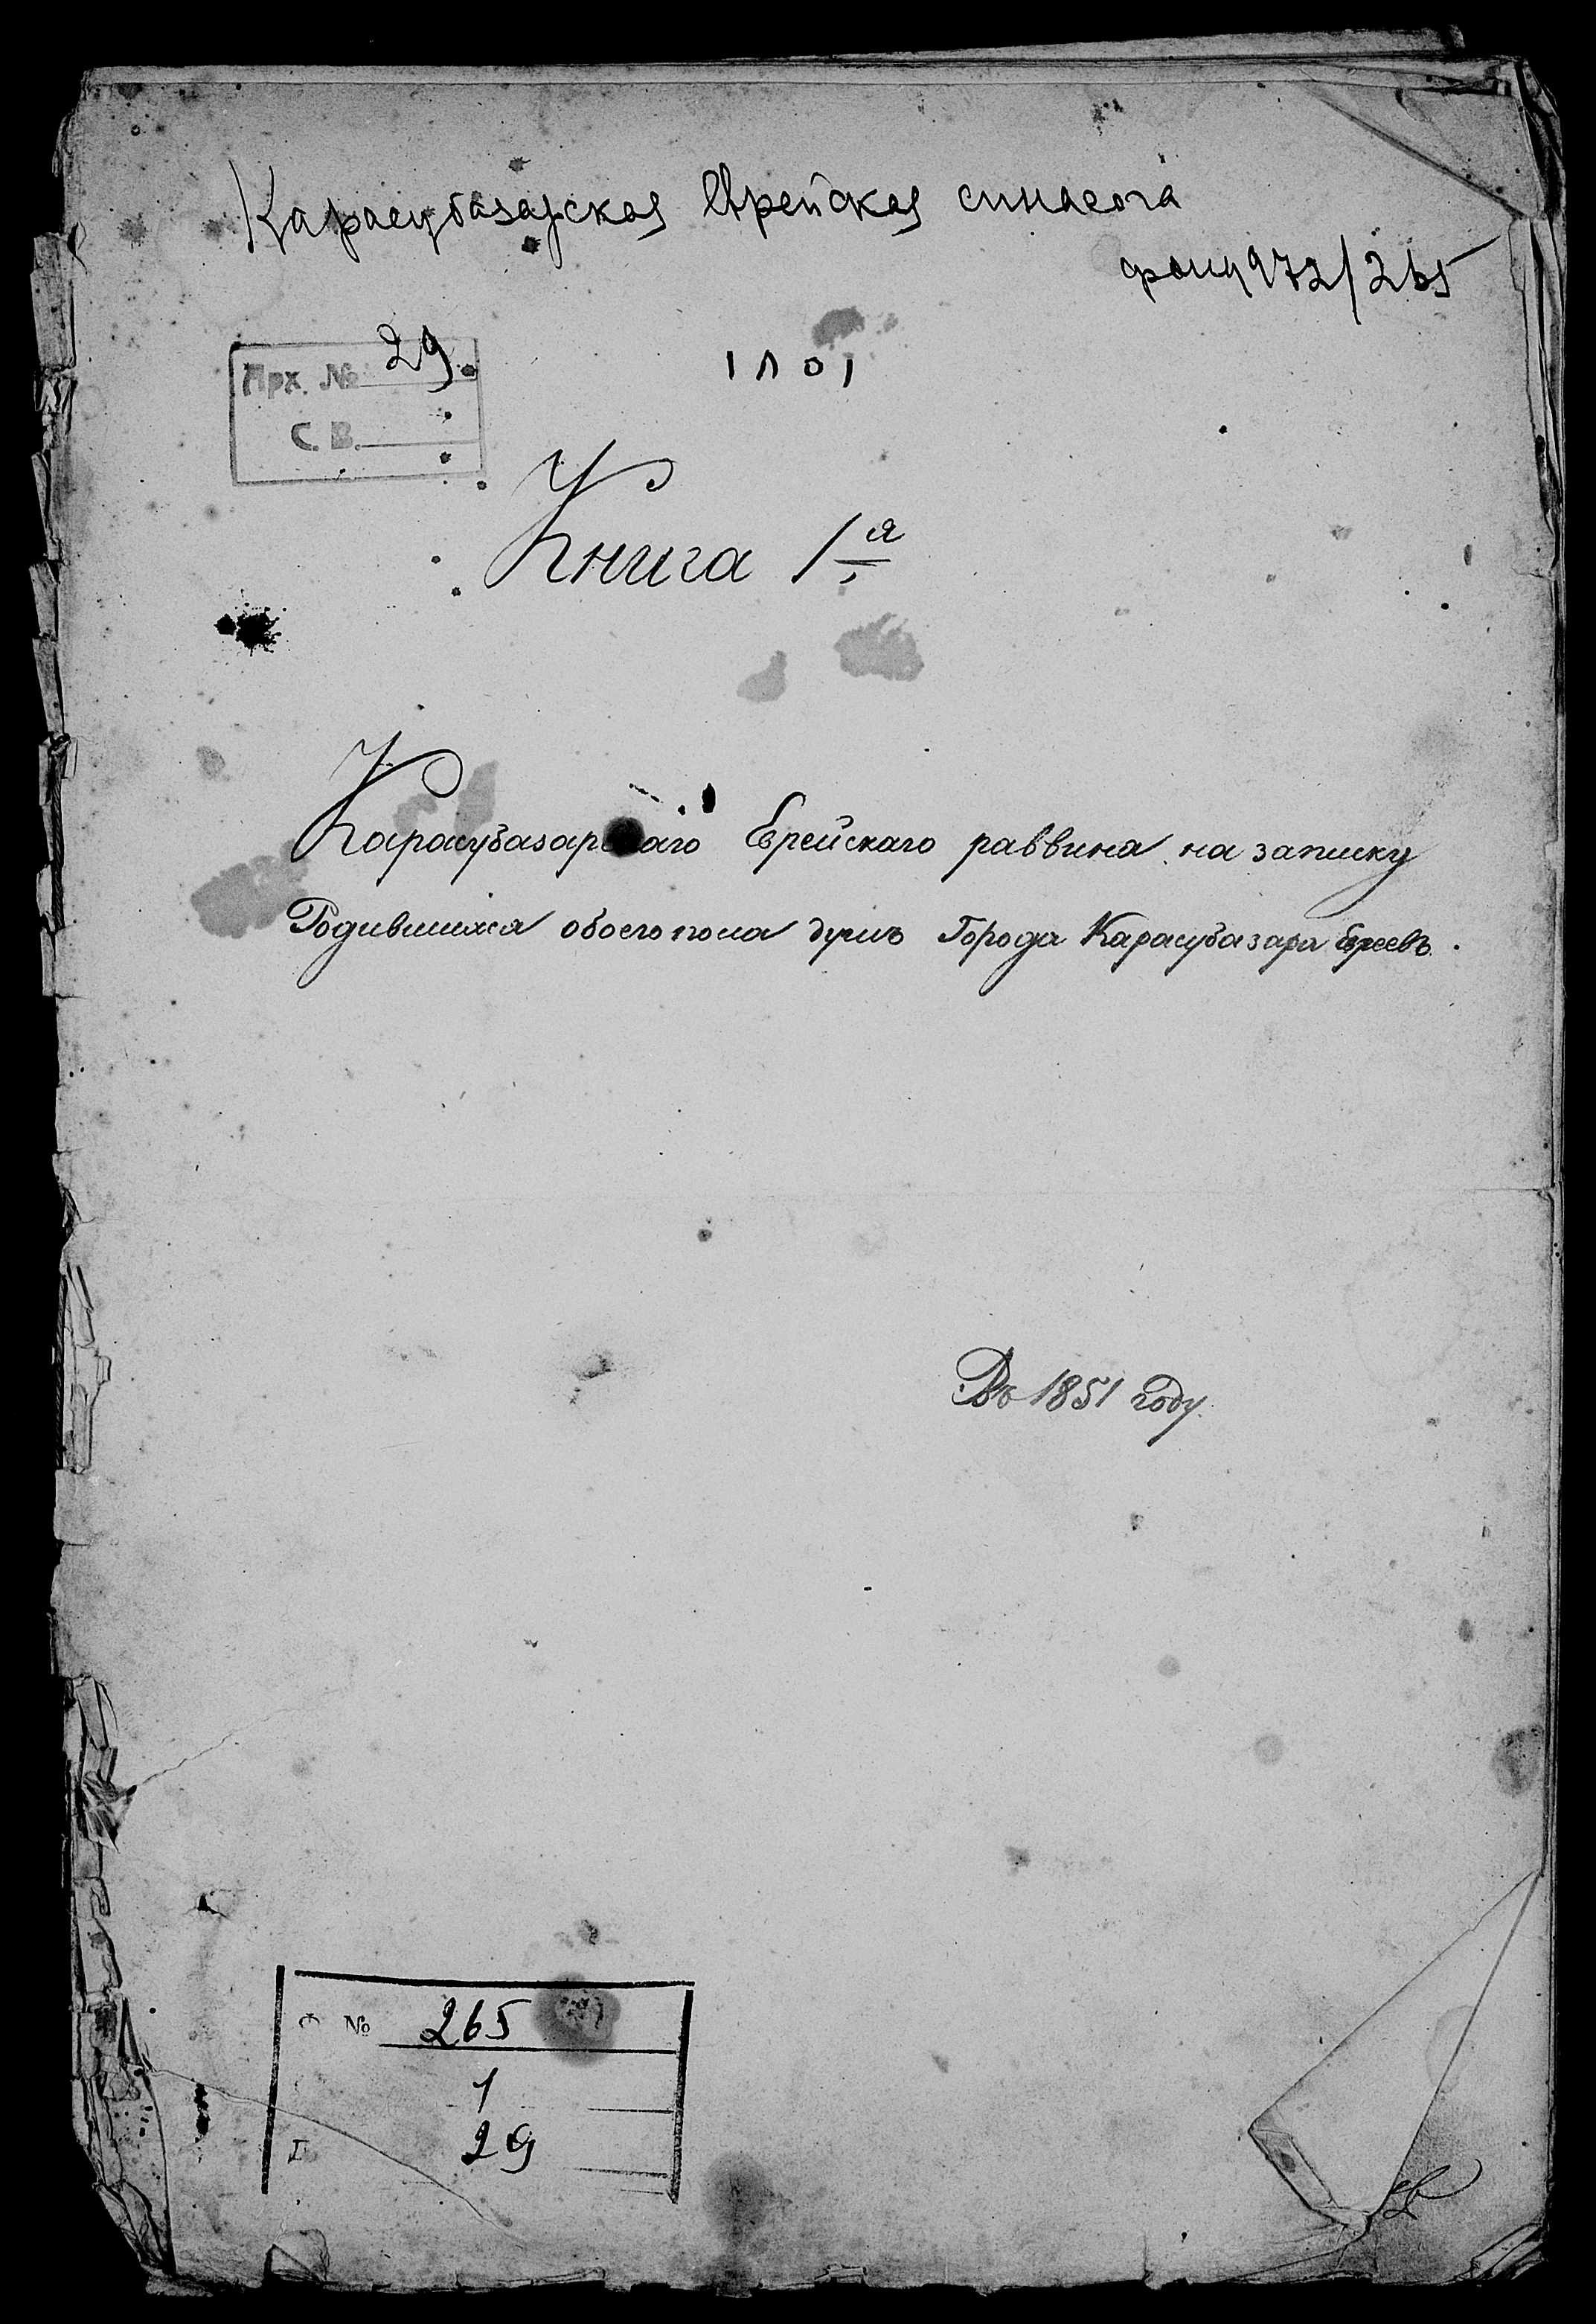 Карасубазарская Еврейская синагога
фонд 972/265
Арх. № 29.
С. В.
Книга 1я
Карасубазарскаго Еврейскаго раввина на записку
Родившихся обоего пола душъ Города Карасубазара Евреевъ.
Въ 1851 году.
Ф № 265
1
29